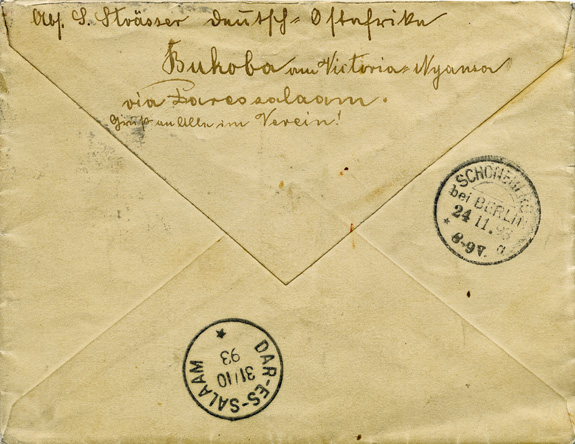 Abs. S. Strässer Deutsch-Ostafrika
Bukoba am Victoria-Nyansa
via Daressalaam.
Gruß an Alle im Verein!
SCHÖNEBERG
bei BERLIN
24 11. 93
* 8-9V. a
DAR-ES-SALAAM
31/10
93
*